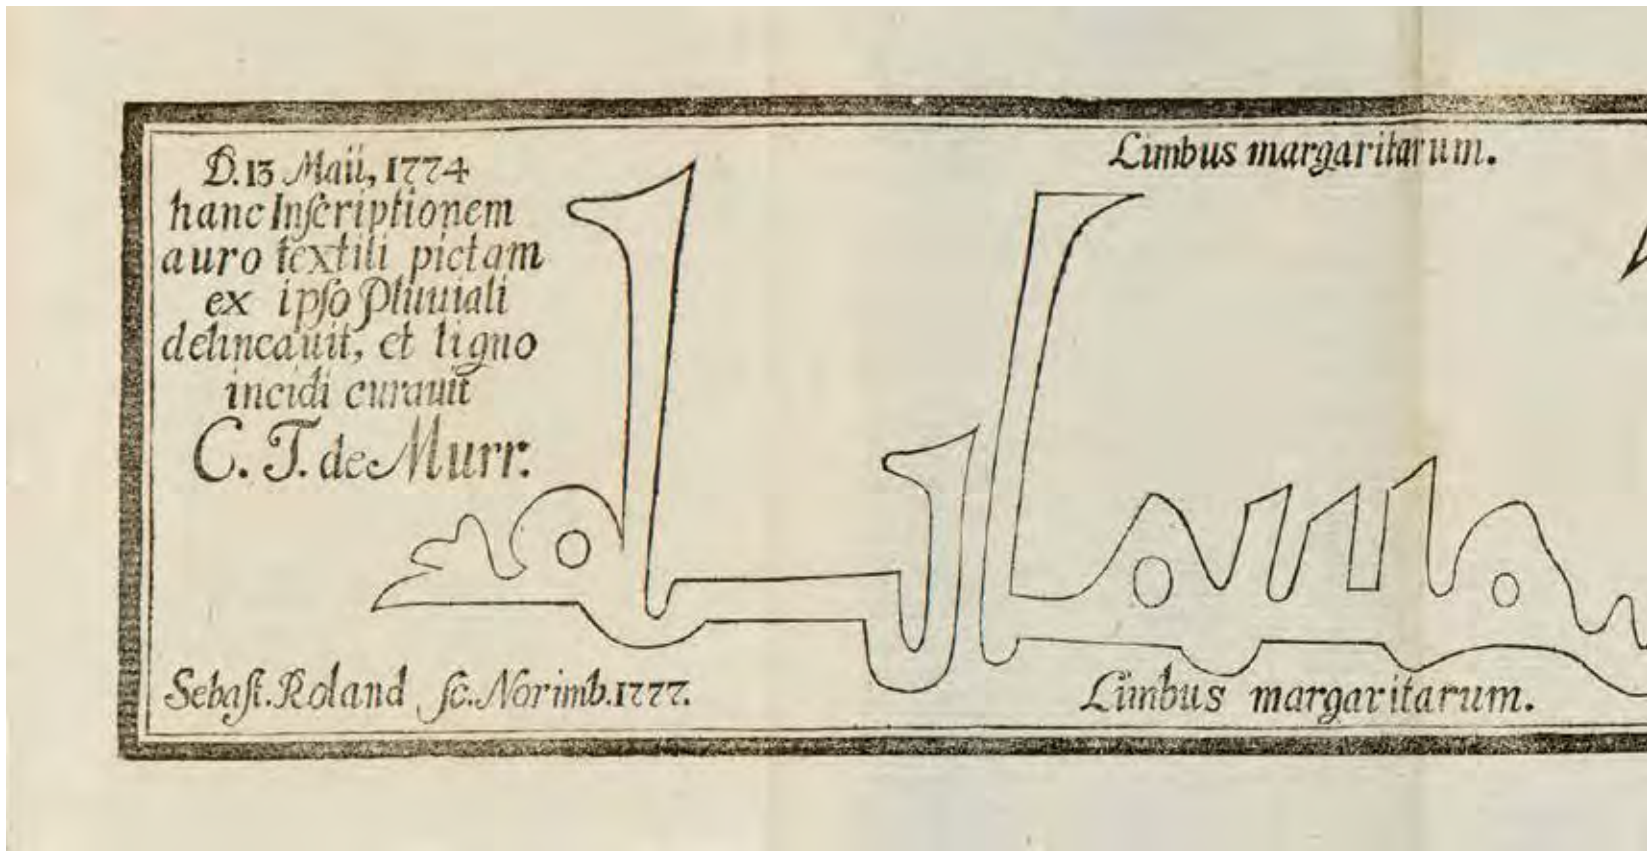 D. 13 Maii, 1774
hanc Inſcriptionem
auro textili pictam
ex ipſo Pluuiali
delineauit, et ligno
incidi curauit
C. T. de Murr.
Limbus margaritarum.
Sebaſt. Roland ſc. Norimb. 1777.
Limbus margaritarum.